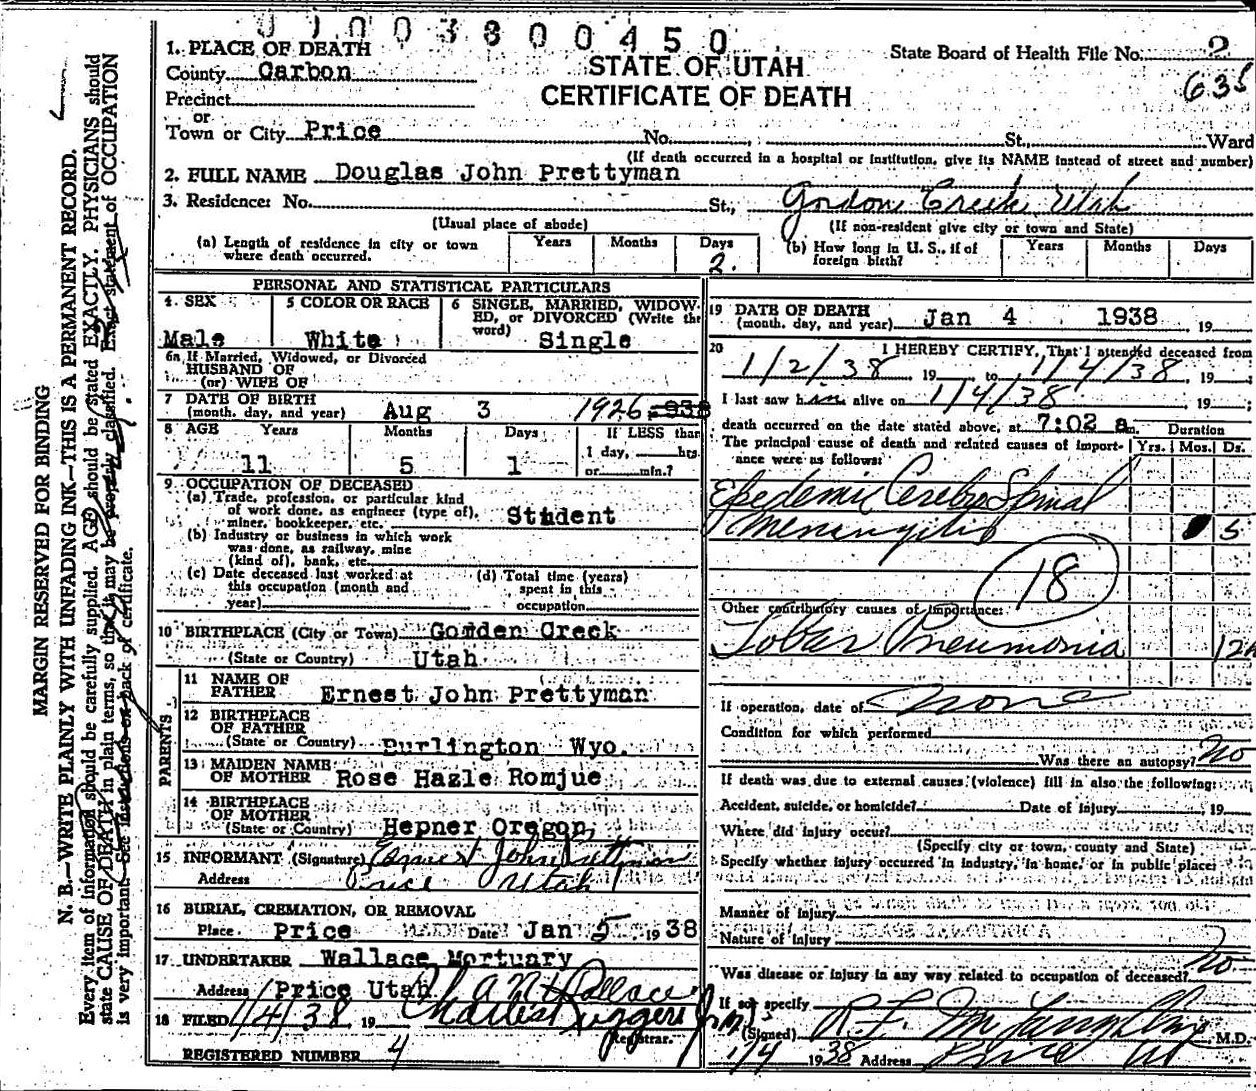 003800450
1. PLACE OF DEATH
County Carbon
STATE OF UTAH
State Board of Health File No. 2
Precinct
CERTIFICATE OF DEATH
635
or
Town or City Price No. St., Ward
(If death occurred in a hospital or institution, give its NAME instead of street and number)
2. FULL NAME Douglas John Prettyman
3. Residence: No. St., Gordon Creek Utah
(Usual place of abode) (If non-resident give city or town and State)
(a) Length of residence in city or town where death occurred. Years Months Days 2.
(b) How long in U. S., if of foreign birth? Years Months Days
PERSONAL AND STATISTICAL PARTICULARS
4. SEX Male
5 COLOR OR RACE White
6 SINGLE, MARRIED, WIDOWED, or DIVORCED (Write the word) Single
6a If Married, Widowed, or Divorced
HUSBAND OF
(or) WIFE OF
7 DATE OF BIRTH
(month, day, and year) Aug 3 1926 1938
8 AGE Years Months Days If LESS than
1 day, hrs.
11 5 1 or min.?
9. OCCUPATION OF DECEASED
(a) Trade, profession, or particular kind
of work done, as engineer (type of),
miner, bookkeeper, etc. Student
(b) Industry or business in which work
was done, as railway, mine
(kind of), bank, etc.
(c) Date deceased last worked at
this occupation (month and
year)
(d) Total time (years)
spent in this
occupation
10 BIRTHPLACE (City or Town) Gordon Creek
(State or Country) Utah
PARENTS
11 NAME OF
FATHER Ernest John Prettyman
12 BIRTHPLACE
OF FATHER
(State or Country) Burlington Wyo.
13 MAIDEN NAME
OF MOTHER Rose Hazle Romjue
14 BIRTHPLACE
OF MOTHER
(State or Country) Hepner Oregon
15 INFORMANT (Signature) Ernest John Prettyman
Address Price Utah
16 BURIAL, CREMATION, OR REMOVAL
Place Price Date Jan 5 1938
17 UNDERTAKER Wallace Mortuary
Address Price Utah Wallace
18 FILED 1/4/38 19 Charles Ruggeri Jr.
Registrar.
REGISTERED NUMBER 4
19 DATE OF DEATH
(month, day, and year) Jan 4 1938, 19
20 I HEREBY CERTIFY, That I attended deceased from
1/2/38, 19 to 1/4/38, 19 ;
I last saw him alive on 1/4/38, 19 ;
death occurred on the date stated above, at 7:02 a m. Duration
The principal cause of death and related causes of importance were as follows: Yrs. Mos. Ds.
Epedemic Cerebro Spinal
Meningitis 5
18
Other contributory causes of importance:
Lobar Pneumonia
If operation, date of None
Condition for which performed
Was there an autopsy? No
If death was due to external causes (violence) fill in also the following:
Accident, suicide, or homicide? Date of Injury 19
Where did injury occur?
(Specify city or town, county and State)
Specify whether injury occurred in industry, in home, or in public place:
Manner of injury
Nature of Injury
Was disease or injury in any way related to occupation of deceased? No
If so, specify
(Signed) R. F. McLaughlin, M.D.
1/4 1938 Address Price Ut
MARGIN RESERVED FOR BINDING
N. B.—WRITE PLAINLY WITH UNFADING INK—THIS IS A PERMANENT RECORD.
Every item of information should be carefully supplied. AGE should be stated EXACTLY. PHYSICIANS should
state CAUSE OF DEATH in plain terms, so that it may be properly classified. Exact statement of OCCUPATION
is very important. See instructions on back of certificate.